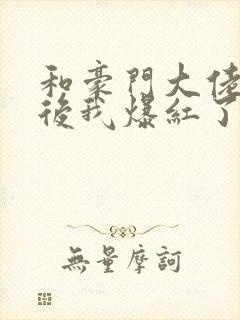 和豪門大佬
後我爆紅了
無量摩訶